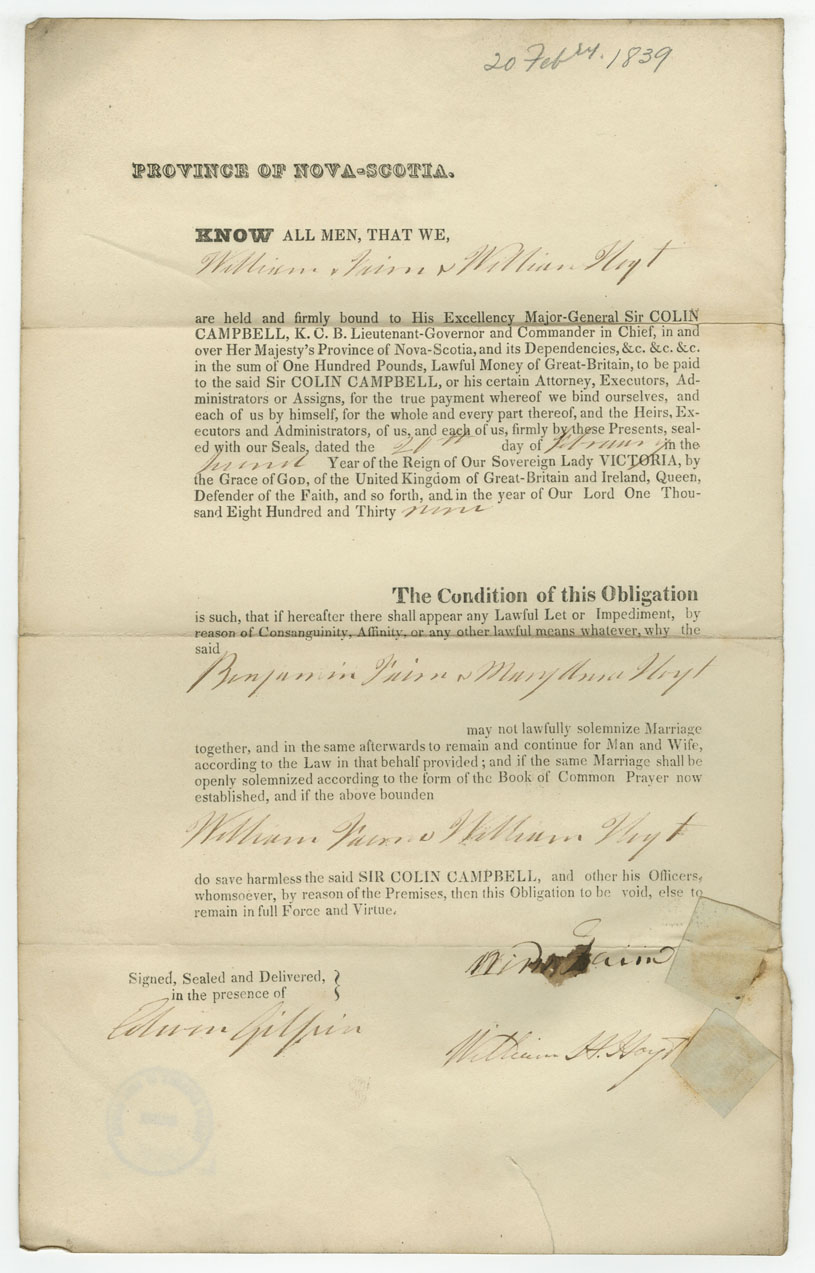 20 Febry. 1839
PROVINCE OF NOVA-SCOTIA.
KNOW ALL MEN, THAT WE,
William Fairn & William Hoyt
are held and firmly bound to His Excellency Major-General Sir COLIN
CAMPBELL, K. C. B. Lieutenant-Governor and Commander in Chief, in and
over Her Majesty's Province of Nova-Scotia, and its Dependencies, &c. &c. &c.
in the sum of One Hundred Pounds, Lawful Money of Great-Britain, to be paid
to the said Sir COLIN CAMPBELL, or his certain Attorney, Executors, Ad-
ministrators or Assigns, for the true payment whereof we bind ourselves, and
each of us by himself, for the whole and every part thereof, and the Heirs, Ex-
ecutors and Administrators, of us, and each of us, firmly by these Presents, seal-
ed with our Seals, dated the 20th day of February in the
second Year of the Reign of Our Sovereign Lady VICTORIA, by
the Grace of GOD, of the United Kingdom of Great-Britain and Ireland, Queen,
Defender of the Faith, and so forth, and in the year of Our Lord One Thou-
sand Eight Hundred and Thirty nine
The Condition of this Obligation
is such, that if hereafter there shall appear any Lawful Let or Impediment, by
reason of Consanguinity, Affinity, or any other lawful means whatever, why the
said
Benjamin Fairn & Mary Ann Hoyt
may not lawfully solemnize Marriage
together, and in the same afterwards to remain and continue for Man and Wife,
according to the Law in that behalf provided; and if the same Marriage shall be
openly solemnized according to the form of the Book of Common Prayer now
established, and if the above bounden
William Fairn & William Hoyt
do save harmless the said SIR COLIN CAMPBELL, and other his Officers,
whomsoever, by reason of the Premises, then this Obligation to be void, else to
remain in full Force and Virtue.
Fairn
Signed, Sealed and Delivered,
in the presence of
Edwin Gilpin
William H. Hoyt